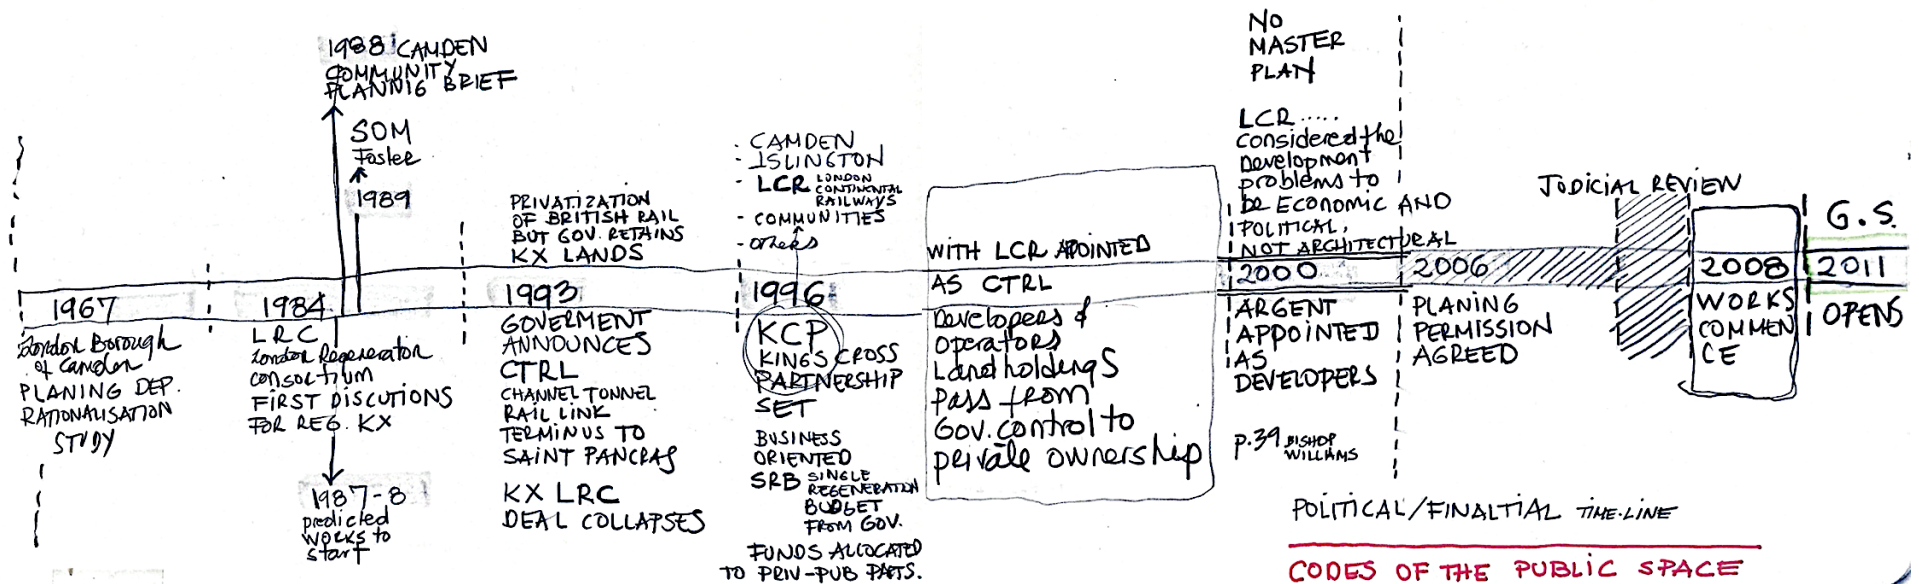 1988 CAMDEN
COMMUNITY
PLANNIG BRIEF
SOM
Foster
1989
1967
London Borough
of Camden
PLANING DEP.
RATIONALISATION
STUDY
1984
LRC
London Regeneration
consoctium
FIRST DISCUTIONS
FOR REG. KX
1987-8
predicted
works to
start
PRIVATIZATION
OF BRITISH RAIL
BUT GOV. RETAINS
KX LANDS
1993
GOVERMENT
ANNOUNCES
CTRL
CHANNEL TONNEL
RAIL LINK
TERMINUS TO
SAINT PANCRAS
KX LRC
DEAL COLLAPSES
· CAMDEN
- ISLINGTON
- LCR LONDON
CONTINENTAL
RAILWAYS
- COMMUNITIES
- others
1996
KCP
KING'S CROSS
PARTNERSHIP
SET
BUSINESS
ORIENTED
SRB SINGLE
REGENERATION
BUDGET
FROM GOV.
FUNDS ALLOCATED
TO PRIV-PUB PATS.
WITH LCR APOINTED
AS CTRL
Developers &
operators
Landholdings
pass from
Gov. control to
private ownership
NO
MASTER
PLAN
LCR.....
considered the
Development
problems to
be ECONOMIC AND
POLITICAL,
NOT ARCHITECTURAL
2000
ARGENT
APPOINTED
AS
DEVELOPERS
p.39 BISHOP
WILLIAMS
2006
PLANING
PERMISSION
AGREED
JUDICIAL REVIEW
2008
WORKS
COMMEN
CE
G.S.
2011
OPENS
POLITICAL/FINALTIAL TIME-LINE
CODES OF THE PUBLIC SPACE